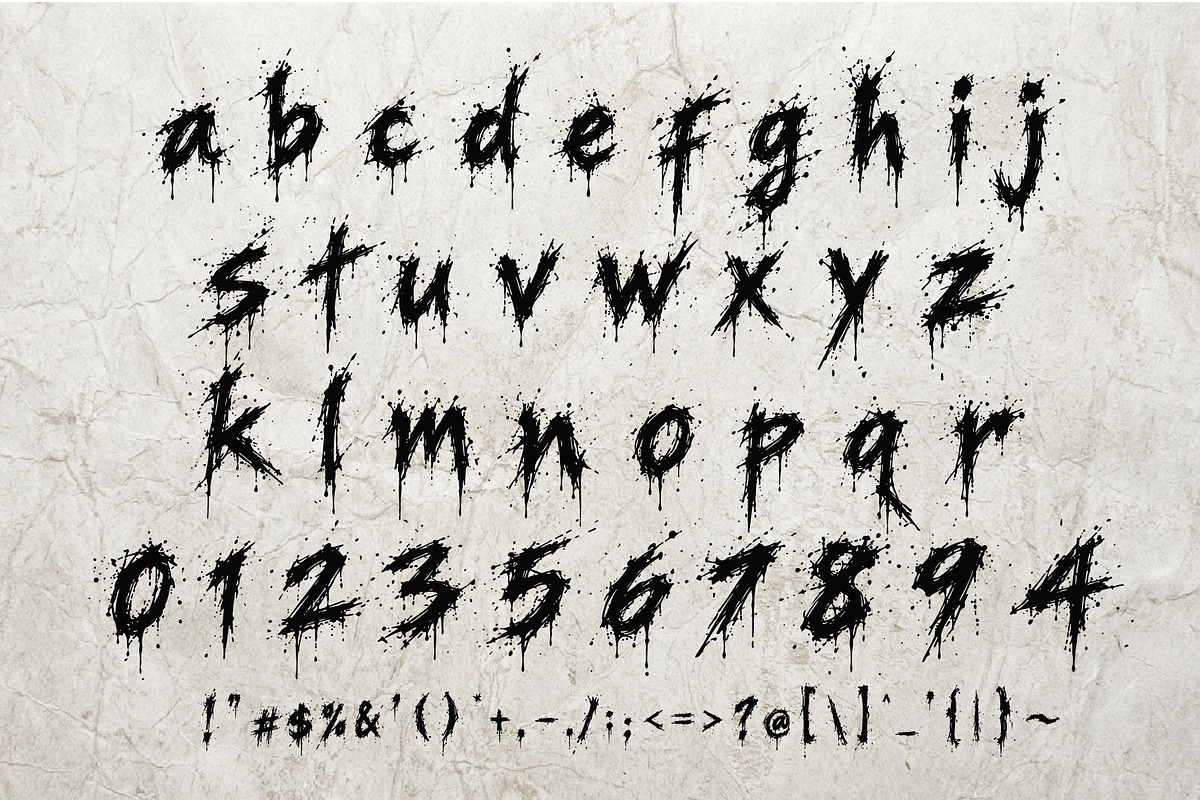 a b c d e f g h i j
s t u v w x y z
k l m n o p q r
0 1 2 3 5 6 7 8 9 4
! " # $ % & ' ( ) * + , - . / : ; < = > ? @ [ \ ] ^ _ ' { | } ~